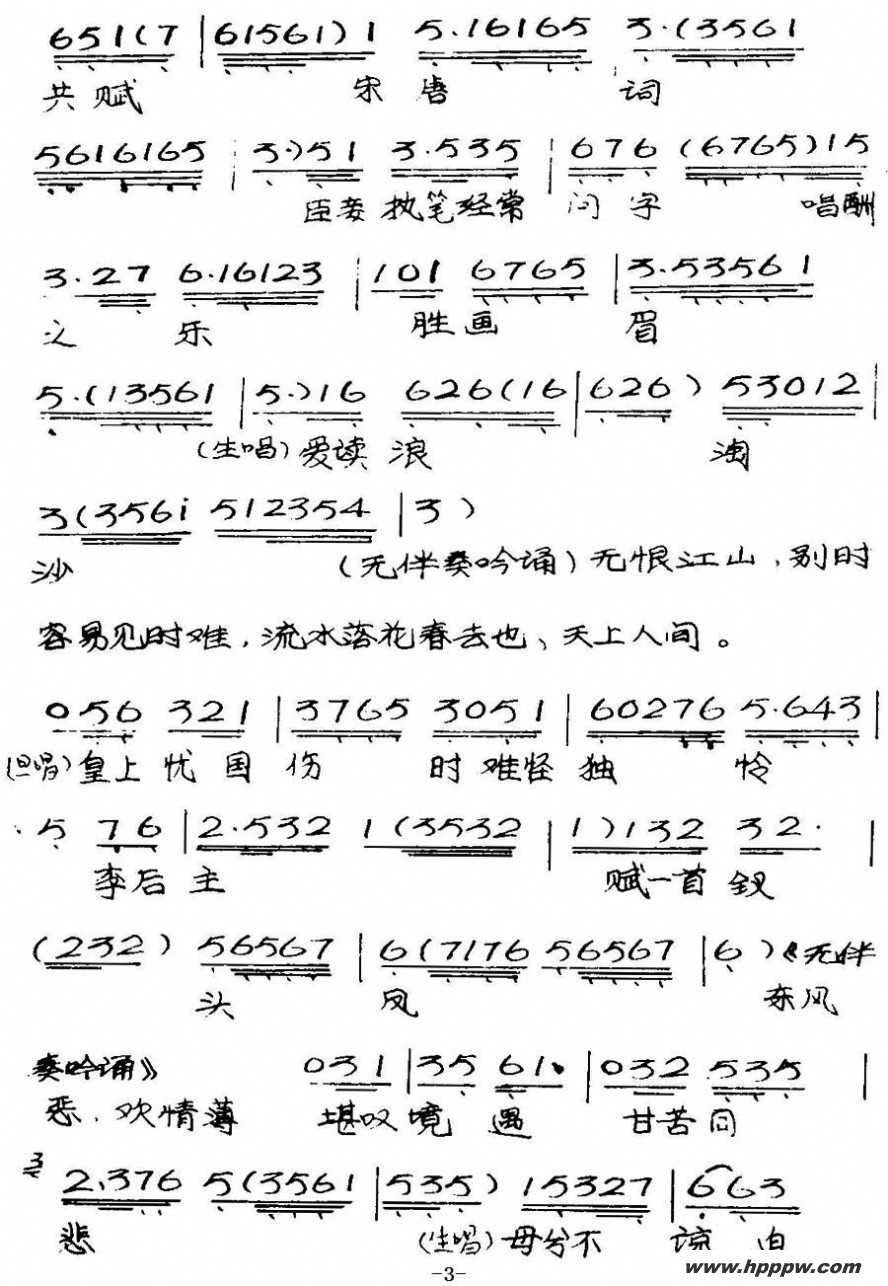 651(7 | 61561) 1 5.16165 3.(3561
共赋 宋唐 词
5616165 | 3.)51 3.535 | 676 (6765)15
臣妾 执笔经常 问字 唱酬
3.27 6.16123 | 101 6765 | 3.53561
之 乐 胜画 眉
5.(13561 | 5.)16 626(16 | 626) 53012 |
(生唱) 爱读 浪 淘
3(3561 512354 | 3)
沙 (无伴奏吟诵) 无恨江山，别时
容易见时难，流水落花春去也、天上人间。
056 321 | 3765 3051 | 60276 5.643 |
(旦唱) 皇上忧国伤 时难怪独 怜
5 76 | 2.532 1(3532 | 1)132 32. |
李后主 赋一首钗
(232) 56567 | 6(7176 56567 | 6)《无伴
头 凤 东风
奏吟诵》 031 | 35 61. | 032 535 |
恶、欢情薄 堪叹境遇 甘苦同
2.376 5(3561 | 535) 15327 | 663
悲 (生唱) 母兮不 谅 迫
-3-
www.hpppw.com